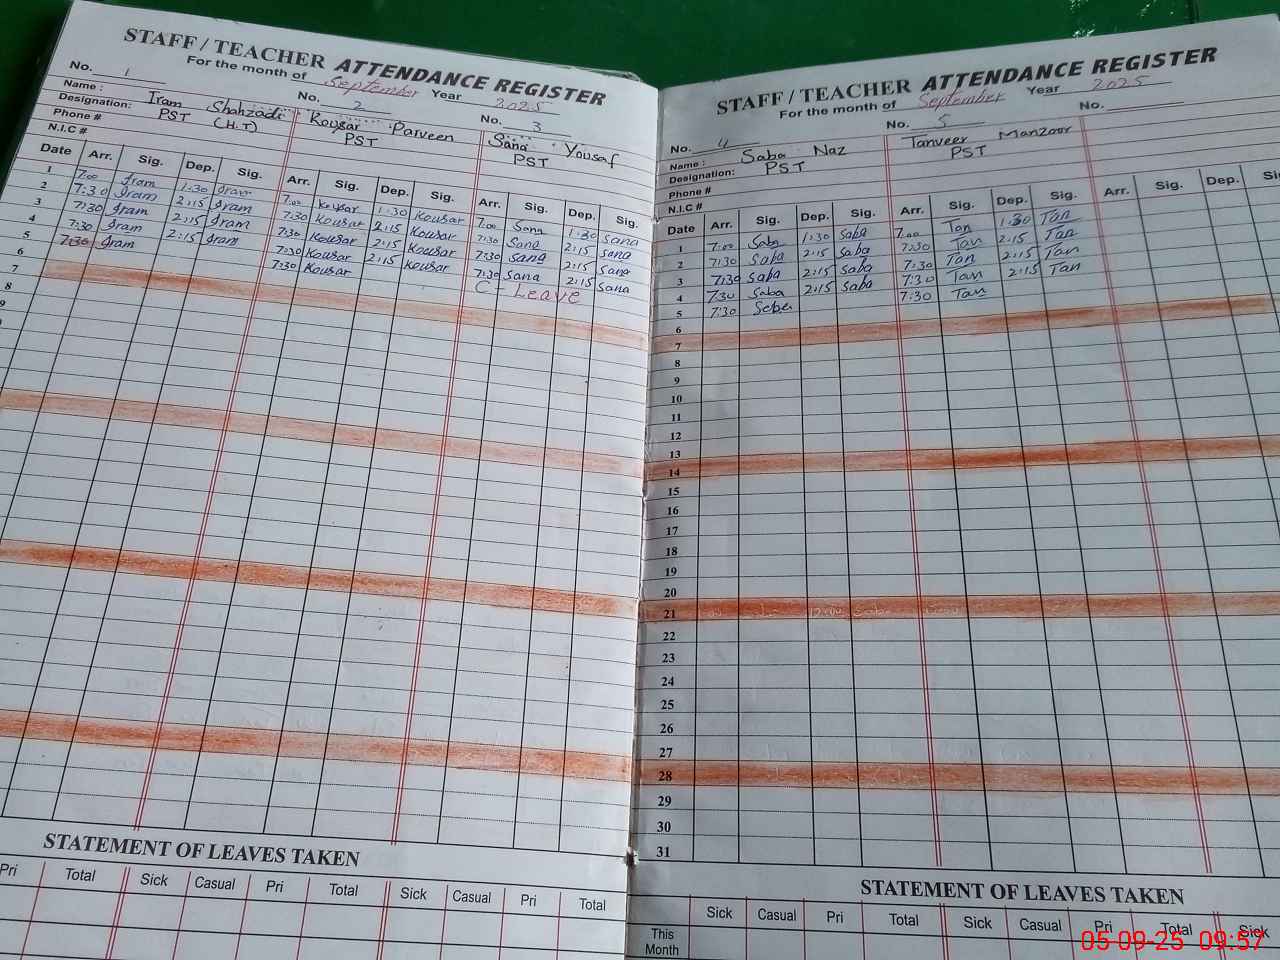 STAFF / TEACHER ATTENDANCE REGISTER
For the month of September Year 2025
No. 1 No. 2 No. 3
Name : Iram Shahzadi Kousar Parveen Sana Yousaf
Designation: PST (H.T) PST PST
Phone #
N.I.C #
Date Arr. Sig. Dep. Sig. Arr. Sig. Dep. Sig. Arr. Sig. Dep. Sig.
1 7:00 Iram 1:30 Iram 7:00 Kousar 1:30 Kousar 7:00 Sana 1:30 Sana
2 7:30 Iram 2:15 Iram 7:30 Kousar 2:15 Kousar 7:30 Sana 2:15 Sana
3 7:30 Iram 2:15 Iram 7:30 Kousar 2:15 Kousar 7:30 Sana 2:15 Sana
4 7:30 Iram 2:15 Iram 7:30 Kousar 2:15 Kousar 7:30 Sana 2:15 Sana
5 7:30 Iram 7:30 Kousar C - Leave
6
7
8
9
STATEMENT OF LEAVES TAKEN
Pri Total Sick Casual Pri Total Sick Casual Pri Total
STAFF / TEACHER ATTENDANCE REGISTER
For the month of September Year 2025
No. 4 No. 5 No.
Name : Saba Naz Tanveer Manzoor
Designation: PST PST
Phone #
N.I.C #
Date Arr. Sig. Dep. Sig. Arr. Sig. Dep. Sig. Arr. Sig. Dep.
1 7:00 Saba 1:30 Saba 7:00 Tan 1:30 Tan
2 7:30 Saba 2:15 Saba 7:30 Tan 2:15 Tan
3 7:30 Saba 2:15 Saba 7:30 Tan 2:15 Tan
4 7:30 Saba 2:15 Saba 7:30 Tan 2:15 Tan
5 7:30 Saba 7:30 Tan
6
7
8
9
10
11
12
13
14
15
16
17
18
19
20
21
22
23
24
25
26
27
28
29
30
31
STATEMENT OF LEAVES TAKEN
Sick Casual Pri Total Sick Casual Pri Total Sick
This Month
05-09-25 09:57